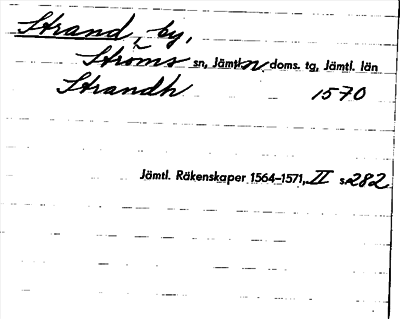 Strand, by,
Ströms sn, Jämtl. n. doms. tg, Jämtl. län
Strandh 1570
Jämtl. Räkenskaper 1564-1571, II s. 282